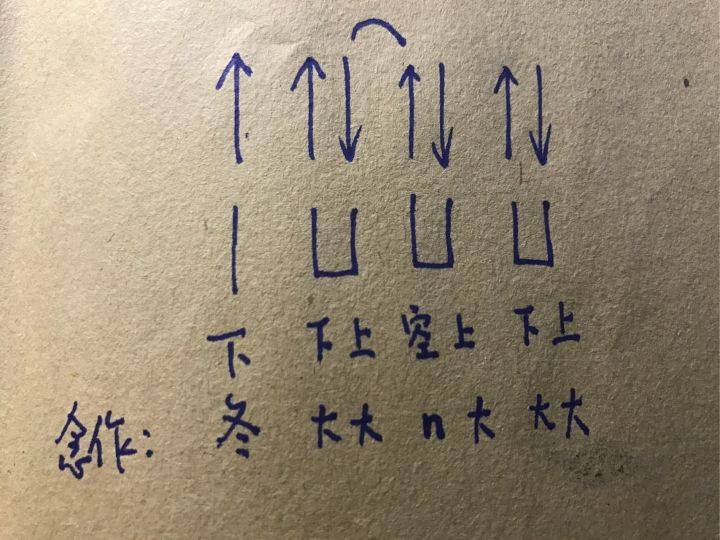 下 下上 空上 下上
念作: 冬 大大 n 大 大大